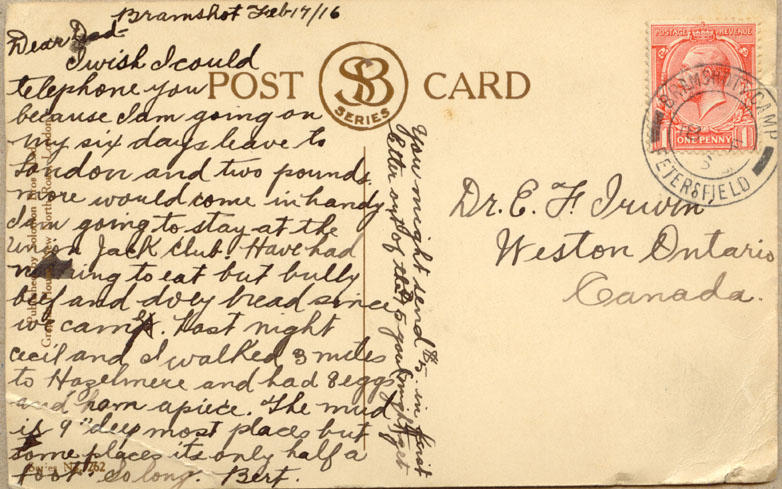 Bramshot Feb 17/16
Dear Dad-
I wish I could
telephone you
because I am going on
my six days leave to
London and two pounds
more would come in handy
I am going to stay at the
Union Jack Club. Have had
nothing to eat but bully
beef and dry bread since
we came. Last night
Cecil and I walked 3 miles
to Hazelmere and had 8 eggs
and ham apiece. The mud
is 9" deep most places but
some places its only half a
foot. So long. Bert.
You might send $5. in first
letter out of the 15 you might get
POST CARD
SB
SERIES
Dr. E. F. Irwin
Weston Ontario
Canada.
POSTAGE REVENUE
ONE PENNY 1
BRAMSHOTT CAMP
PETERSFIELD
Published by Solomon Bros
New North Road London
Series No. 262